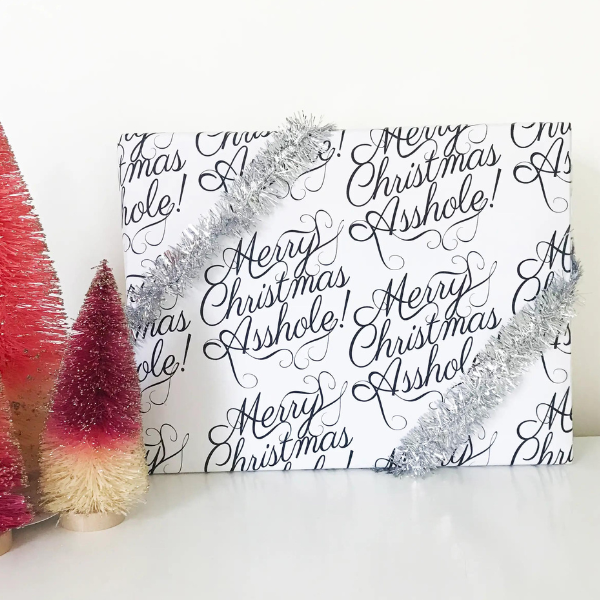 Christmas
hole!
Merry
Christmas
Asshole!
Merry
Christmas
Asshole!
Merry
Christmas
Asshole!
hole!
Merry
Christmas